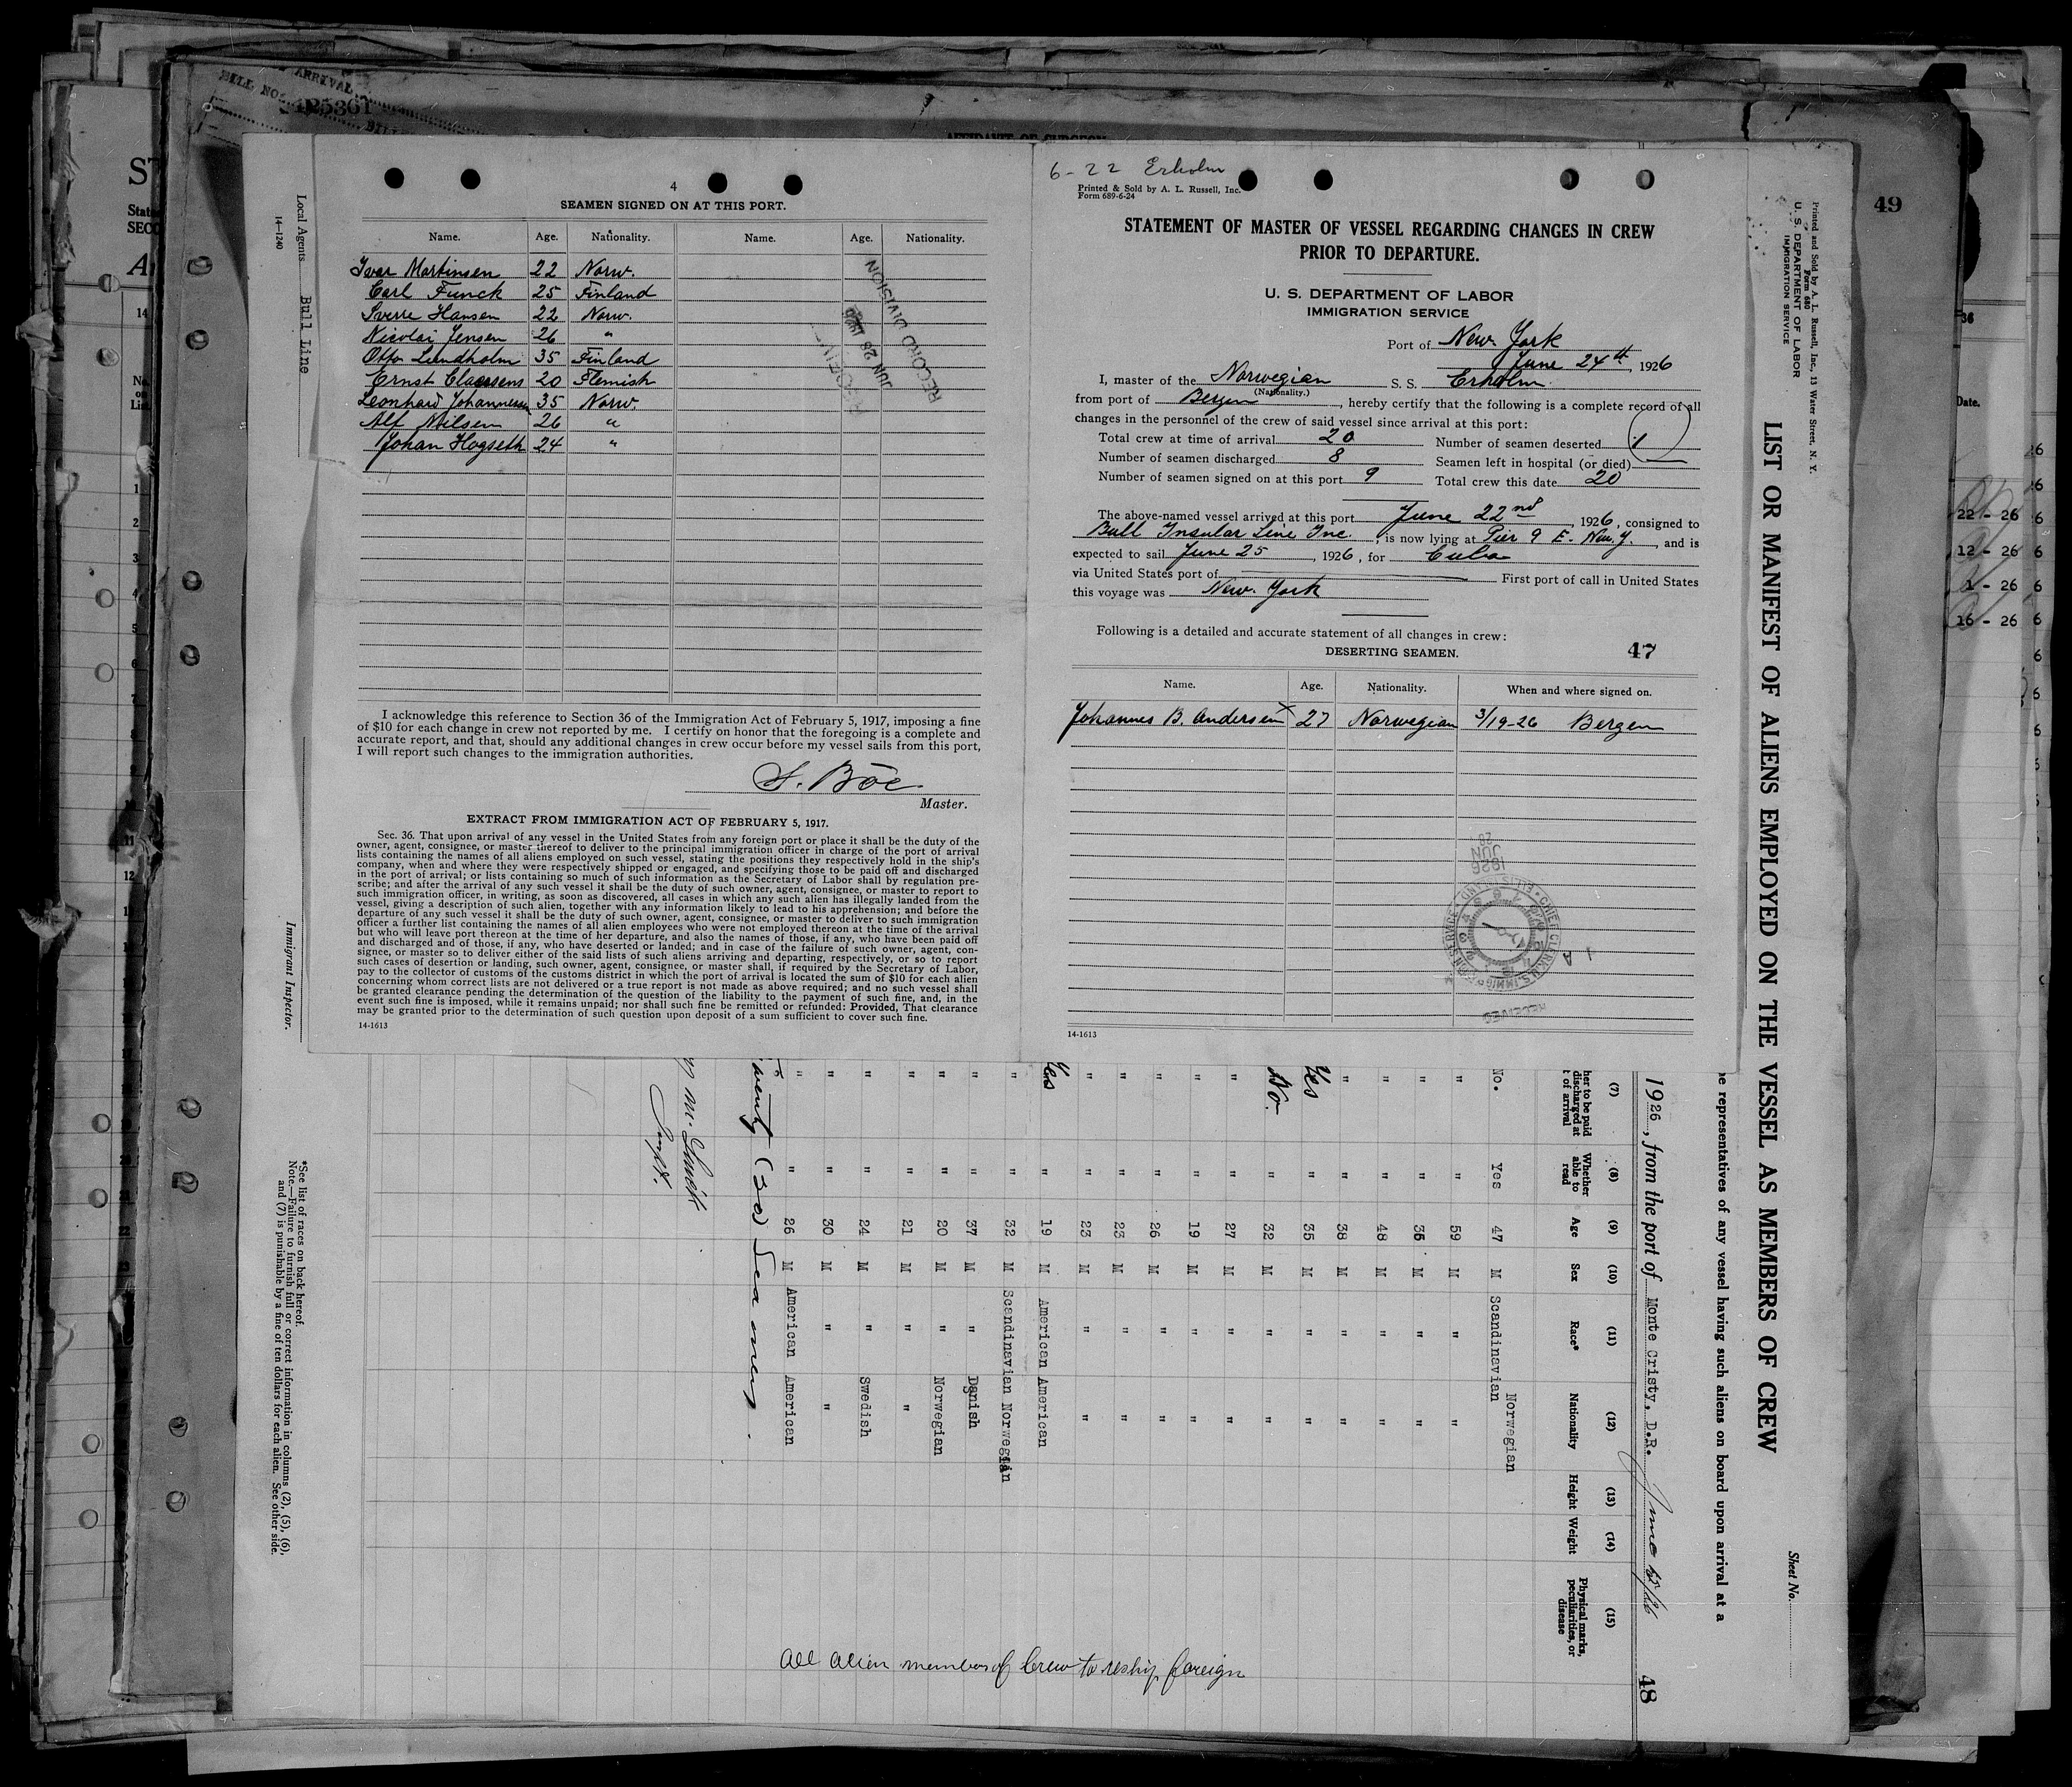 BILL NO.
ARRIVAL
25361
AFFIDAVIT OF SURGEON
4
SEAMEN SIGNED ON AT THIS PORT.
Name. Age. Nationality. Name. Age. Nationality.
Ivar Martinsen 22 Norw.
Carl Funck 25 Finland
Sverre Hansen 22 Norw.
Nicolai Jensen 26 "
Otto Lundholm 35 Finland
Ernst Claessens 20 Flemish
Leonhard Johannesen 35 Norw.
Alf Nilsen 26 "
Johan Hogseth 24 "
RECORD DIVISION
JUN 28 1926
I acknowledge this reference to Section 36 of the Immigration Act of February 5, 1917, imposing a fine
of $10 for each change in crew not reported by me. I certify on honor that the foregoing is a complete and
accurate report, and that, should any additional changes in crew occur before my vessel sails from this port,
I will report such changes to the immigration authorities.
S. Böe
Master.
EXTRACT FROM IMMIGRATION ACT OF FEBRUARY 5, 1917.
Sec. 36. That upon arrival of any vessel in the United States from any foreign port or place it shall be the duty of the
owner, agent, consignee, or master thereof to deliver to the principal immigration officer in charge of the port of arrival
lists containing the names of all aliens employed on such vessel, stating the positions they respectively hold in the ship's
company, when and where they were respectively shipped or engaged, and specifying those to be paid off and discharged
in the port of arrival; or lists containing so much of such information as the Secretary of Labor shall by regulation pre-
scribe; and after the arrival of any such vessel it shall be the duty of such owner, agent, consignee, or master to report to
such immigration officer, in writing, as soon as discovered, all cases in which any such alien has illegally landed from the
vessel, giving a description of such alien, together with any information likely to lead to his apprehension; and before the
departure of any such vessel it shall be the duty of such owner, agent, consignee, or master to deliver to such immigration
officer a further list containing the names of all alien employees who were not employed thereon at the time of the arrival
but who will leave port thereon at the time of her departure, and also the names of those, if any, who have been paid off
and discharged and of those, if any, who have deserted or landed; and in case of the failure of such owner, agent, con-
signee, or master so to deliver either of the said lists of such aliens arriving and departing, respectively, or so to report
such cases of desertion or landing, such owner, agent, consignee, or master shall, if required by the Secretary of Labor,
pay to the collector of customs of the customs district in which the port of arrival is located the sum of $10 for each alien
concerning whom correct lists are not delivered or a true report is not made as above required; and no such vessel shall
be granted clearance pending the determination of the question of the liability to the payment of such fine, and, in the
event such fine is imposed, while it remains unpaid; nor shall such fine be remitted or refunded: Provided, That clearance
may be granted prior to the determination of such question upon deposit of a sum sufficient to cover such fine.
14-1613
6-22 Erholm
Printed & Sold by A. L. Russell, Inc.
Form 689-6-24
STATEMENT OF MASTER OF VESSEL REGARDING CHANGES IN CREW
PRIOR TO DEPARTURE.
U. S. DEPARTMENT OF LABOR
IMMIGRATION SERVICE
Port of New York
June 24th, 1926
I, master of the Norwegian S. S. Erholm
(Nationality.)
from port of Bergen, hereby certify that the following is a complete record of all
changes in the personnel of the crew of said vessel since arrival at this port:
Total crew at time of arrival 20 Number of seamen deserted 1
Number of seamen discharged 8 Seamen left in hospital (or died)
Number of seamen signed on at this port 9 Total crew this date 20
The above-named vessel arrived at this port June 22nd, 1926, consigned to
Bull Insular Line Inc., is now lying at Pier 9 E. New. Y., and is
expected to sail June 25, 1926, for Cuba
via United States port of First port of call in United States
this voyage was New York
Following is a detailed and accurate statement of all changes in crew:
DESERTING SEAMEN. 47
Name. Age. Nationality. When and where signed on.
Johannes B. Andersen x 27 Norwegian 3/19-26 Bergen
JUN 1926
RECEIVED
14-1613
Local Agents Bull Line
14-1240
Immigrant Inspector.
*See list of races on back hereof.
Note.—Failure to furnish full or correct information in columns (2), (5), (6),
and (7) is punishable by a fine of ten dollars for each alien. See other side.
Printed and Sold by A. L. Russell, Inc., 13 Water Street, N. Y.
Form 680
U. S. DEPARTMENT OF LABOR
IMMIGRATION SERVICE
Sheet No.
LIST OR MANIFEST OF ALIENS EMPLOYED ON THE VESSEL AS MEMBERS OF CREW
representatives of any vessel having such aliens on board upon arrival at a
1926, from the port of Monte Cristy, D.R. 48
(7) (8) (9) (10) (11) (12) (13) (14) (15)
her to be paid discharged at t of arrival Whether able to read Age Sex Race* Nationality Height Weight Physical marks, peculiarities, or disease
No. Yes 47 M Scandinavian Norwegian
" " 59 M " "
" " 35 M " "
" " 48 M " "
" " 38 M " "
Yes " 35 M " "
No. " 32 M " "
" " 27 M " "
" " 19 M " "
" " 26 M " "
" " 23 M " "
" " 23 M " "
Yes " 19 M American American
" " 32 M Scandinavian Norwegian
" " 37 M " Danish
" " 20 M " Norwegian
" " 21 M " "
" " 24 M " Swedish
" " 30 M " "
" " 26 M American American
Twenty (20) Seamen.
Inspt.
All alien members of Crew to reship foreign
49
Date.
22 - 26
12 - 26
1 - 26
16 - 26